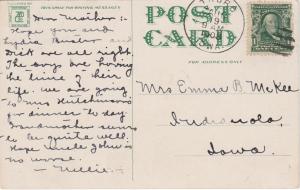 THIS SPACE FOR WRITING MESSAGES
POST
CARD
FOR ADDRESS ONLY
Dear Mother:-
Hope you and
Lydia and
Dick are all right.
The boys are having
the time of their
life. We are going
to Mrs Hutchinsons
for dinner to day.
Grandmother seems
to be quite well.
Hope Uncle John is
no worse.
- Nellie.-
Mrs Emma B McKee
Indianola,
Iowa.